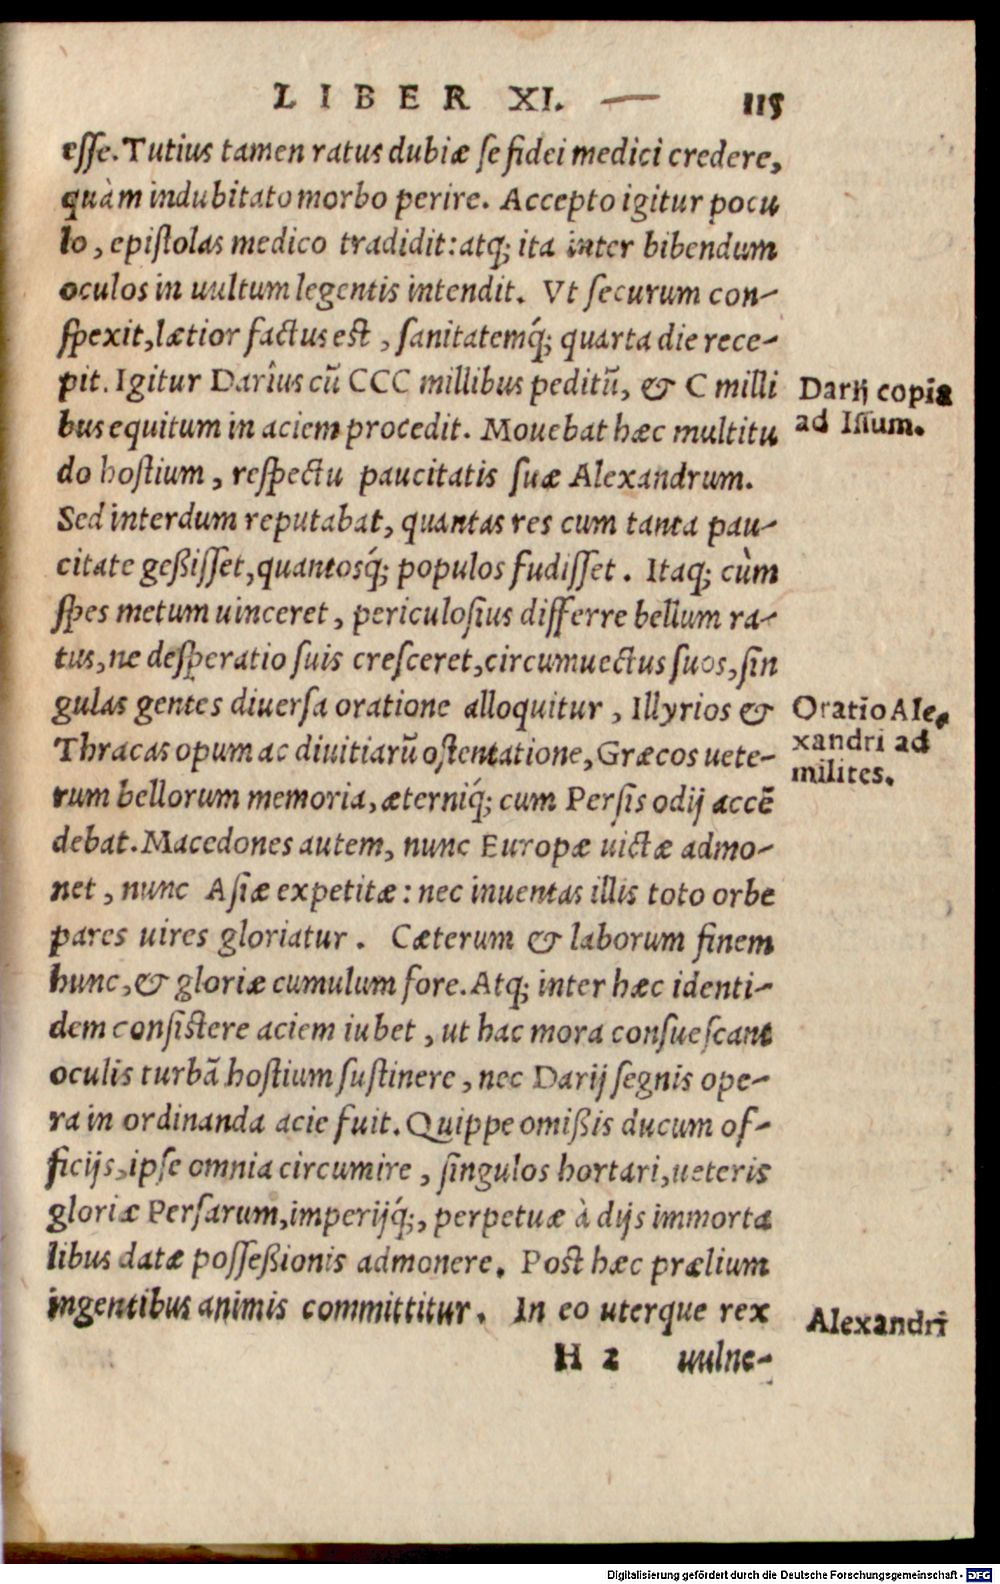 LIBER XI. — 115
esse. Tutius tamen ratus dubiæ se fidei medici credere,
quàm indubitato morbo perire. Accepto igitur pocu
lo, epistolas medico tradidit: atq; ita inter bibendum
oculos in uultum legentis intendit. Vt securum con-
spexit, lætior factus est, sanitatemq́; quarta die rece-
pit. Igitur Darius cū CCC millibus peditū, & C milli
bus equitum in aciem procedit. Mouebat hæc multitu
do hostium, respectu paucitatis suæ Alexandrum.
Sed interdum reputabat, quantas res cum tanta pau-
citate geßisset, quantosq́; populos fudisset. Itaq; cùm
spes metum uinceret, periculosius differre bellum ra-
tus, ne desperatio suis cresceret, circumuectus suos, sin
gulas gentes diuersa oratione alloquitur, Illyrios &
Thracas opum ac diuitiarū ostentatione, Græcos uete-
rum bellorum memoria, æterniq́; cum Persis odij accē
debat. Macedones autem, nunc Europæ uictæ admo-
net, nunc Asiæ expetitæ: nec inuentas illis toto orbe
pares uires gloriatur. Cæterum & laborum finem
hunc, & gloriæ cumulum fore. Atq; inter hæc identi-
dem consistere aciem iubet, ut hac mora consuescant
oculis turbā hostium sustinere, nec Darij segnis ope-
ra in ordinanda acie fuit. Quippe omißis ducum of-
ficijs, ipse omnia circumire, singulos hortari, ueteris
gloriæ Persarum, imperijq́;, perpetuæ à dijs immorta
libus datæ posseßionis admonere. Post hæc prælium
ingentibus animis committitur. In eo uterque rex
H 2 uulne-
Darij copiæ
ad Issum.
Oratio Ale-
xandri ad
milites.
Alexandri
Digitalisierung gefördert durch die Deutsche Forschungsgemeinschaft - DFG